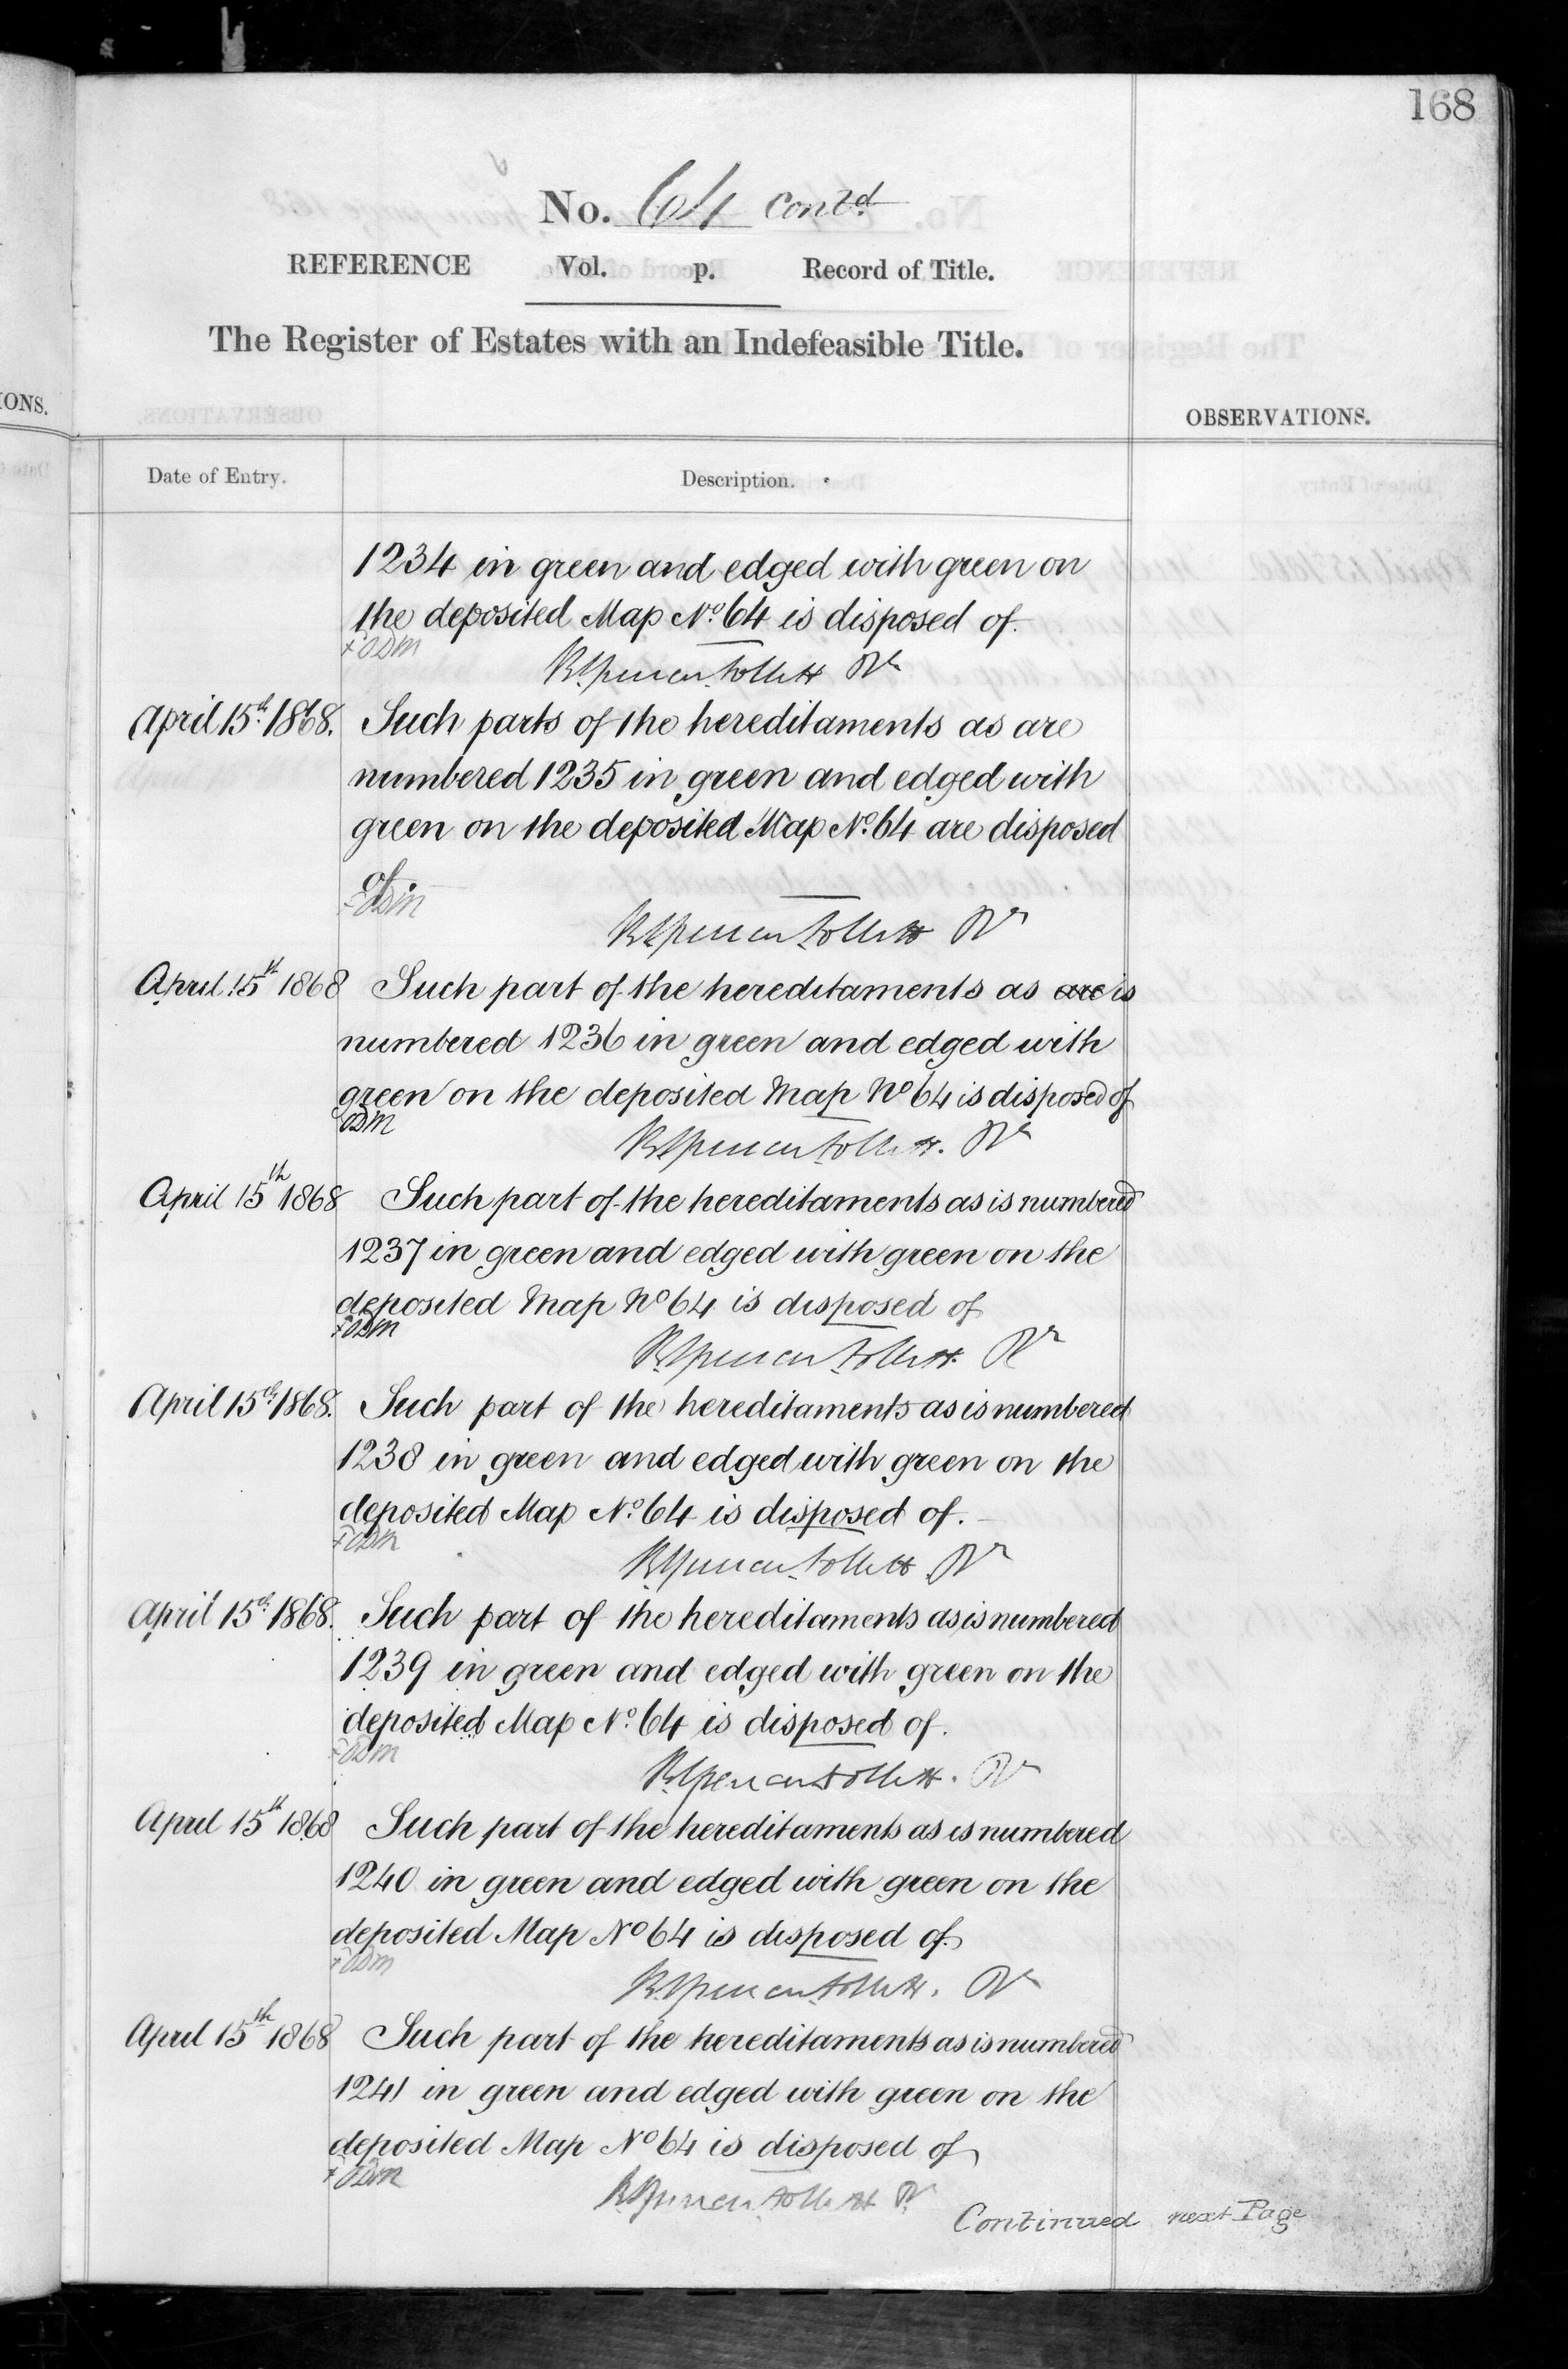 168
No. 64 Contd
REFERENCE Vol. p. Record of Title.
The Register of Estates with an Indefeasible Title.
IONS.
OBSERVATIONS.
Date of Entry. Description.
1234 in green and edged with green on
the deposited Map No. 64 is disposed of.
+ ODM
R Spencer Follett Rr
April 15th 1868. Such parts of the hereditaments as are
numbered 1235 in green and edged with
green on the deposited Map No. 64 are disposed
of.
ODM
R Spencer Follett Rr
April 15th 1868 Such part of the hereditaments as are is
numbered 1236 in green and edged with
green on the deposited Map No 64 is disposed of
ODM
R Spencer Follett. Rr
April 15th 1868 Such part of the hereditaments as is numbered
1237 in green and edged with green on the
deposited Map No 64 is disposed of
+ ODM
R Spencer Follett. Rr
April 15th 1868. Such part of the hereditaments as is numbered
1238 in green and edged with green on the
deposited Map No. 64 is disposed of.
+ ODM
R Spencer Follett Rr
April 15th 1868. Such part of the hereditaments as is numbered
1239 in green and edged with green on the
deposited Map No. 64 is disposed of.
+ ODM
R Spencer Follett. Rr
April 15th 1868 Such part of the hereditaments as is numbered
1240 in green and edged with green on the
deposited Map No 64 is disposed of.
+ ODM
R Spencer Follett. Rr
April 15th 1868 Such part of the hereditaments as is numbered
1241 in green and edged with green on the
deposited Map No 64 is disposed of
+ ODM
R Spencer Follett Rr
Continued next Page